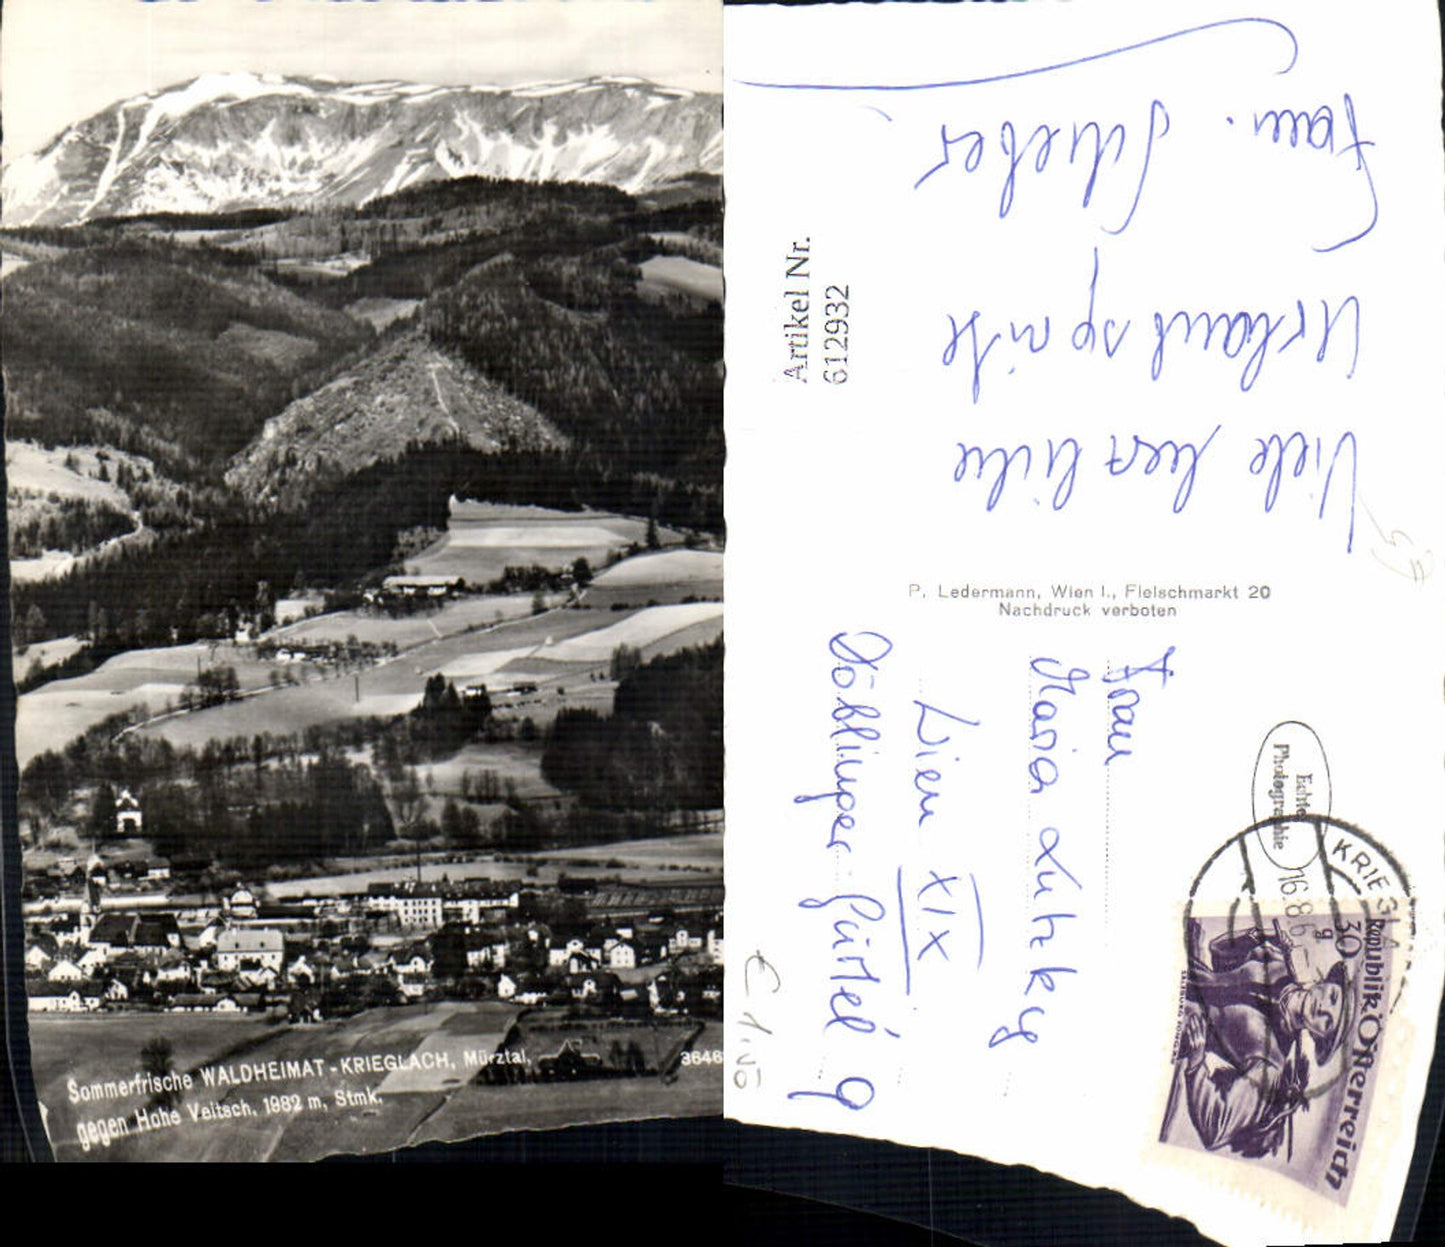 Sommerfrische WALDHEIMAT - KRIEGLACH, Mürztal,
gegen Hohe Veitsch, 1982 m, Stmk.
3646
Artikel Nr.
612932
Viele herzliche
Urlaubsgrüße
Fam. Schefer
P. Ledermann, Wien I., Fleischmarkt 20
Nachdruck verboten
Frau
Maria Lutzky
Wien XIX
Döblinger Gürtel 9
Echte
Photographie
KRIEGLA
16.8.6
Republik Österreich
30 g
SALZBURG, PONGAU
€ 1,50